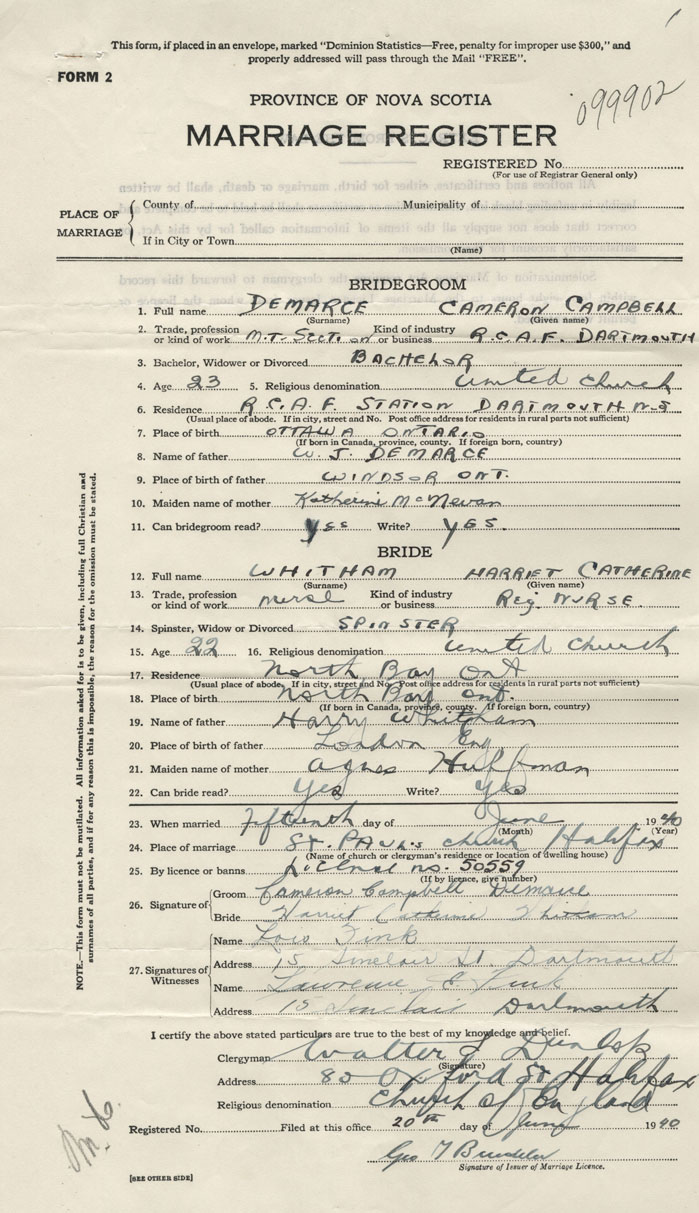 This form, if placed in an envelope, marked "Dominion Statistics—Free, penalty for improper use $300," and
properly addressed will pass through the Mail "FREE".
FORM 2
099902
PROVINCE OF NOVA SCOTIA
MARRIAGE REGISTER
REGISTERED No.
(For use of Registrar General only)
PLACE OF MARRIAGE
County of Municipality of
If in City or Town
(Name)
BRIDEGROOM
1. Full name DEMARCE CAMERON CAMPBELL
(Surname) (Given name)
2. Trade, profession or kind of work M.T. Section Kind of industry or business R.C.A.F. DARTMOUTH
3. Bachelor, Widower or Divorced BACHELOR
4. Age 23 5. Religious denomination United Church
6. Residence R.C.A.F. STATION DARTMOUTH N.S
(Usual place of abode. If in city, street and No. Post office address for residents in rural parts not sufficient)
7. Place of birth OTTAWA ONTARIO
(If born in Canada, province, county. If foreign born, country)
8. Name of father W. J. DEMARCE
9. Place of birth of father WINDSOR ONT.
10. Maiden name of mother Katherine
11. Can bridegroom read? yes Write? YES.
BRIDE
12. Full name WHITHAM HARRIET CATHERINE
(Surname) (Given name)
13. Trade, profession or kind of work nurse Kind of industry or business Reg. NURSE.
14. Spinster, Widow or Divorced SPINSTER
15. Age 22 16. Religious denomination United Church
17. Residence North Bay Ont
(Usual place of abode. If in city, street and No. Post office address for residents in rural parts not sufficient)
18. Place of birth North Bay Ont.
(If born in Canada, province, county. If foreign born, country)
19. Name of father Harry Whitham
20. Place of birth of father London Eng
21. Maiden name of mother Agnes Huffman
22. Can bride read? Yes Write? Yes
23. When married Fifteenth day of June 1940
(Month) (Year)
24. Place of marriage St. PAUL'S church Halifax
(Name of church or clergyman's residence or location of dwelling house)
25. By licence or banns License no. 50559
(If by licence, give number)
26. Signature of
Groom Cameron Campbell Demarce
Bride Harriet Catherine Whitham
27. Signatures of Witnesses
Name Lois Fink
Address 15 Sinclair St. Dartmouth
Name Lawrence E. Fink
Address 15 Sinclair Dartmouth
I certify the above stated particulars are true to the best of my knowledge and belief.
Clergyman Walter Dunlop
(Signature)
Address 80 Oxford St Halifax
Religious denomination Church of England
Registered No. Filed at this office 20th day of June 1940
Geo T
Signature of Issuer of Marriage Licence.
[SEE OTHER SIDE]
NOTE.—This form must not be mutilated. All information asked for is to be given, including full Christian and
surnames of all parties, and if for any reason this is impossible, the reason for the omission must be stated.